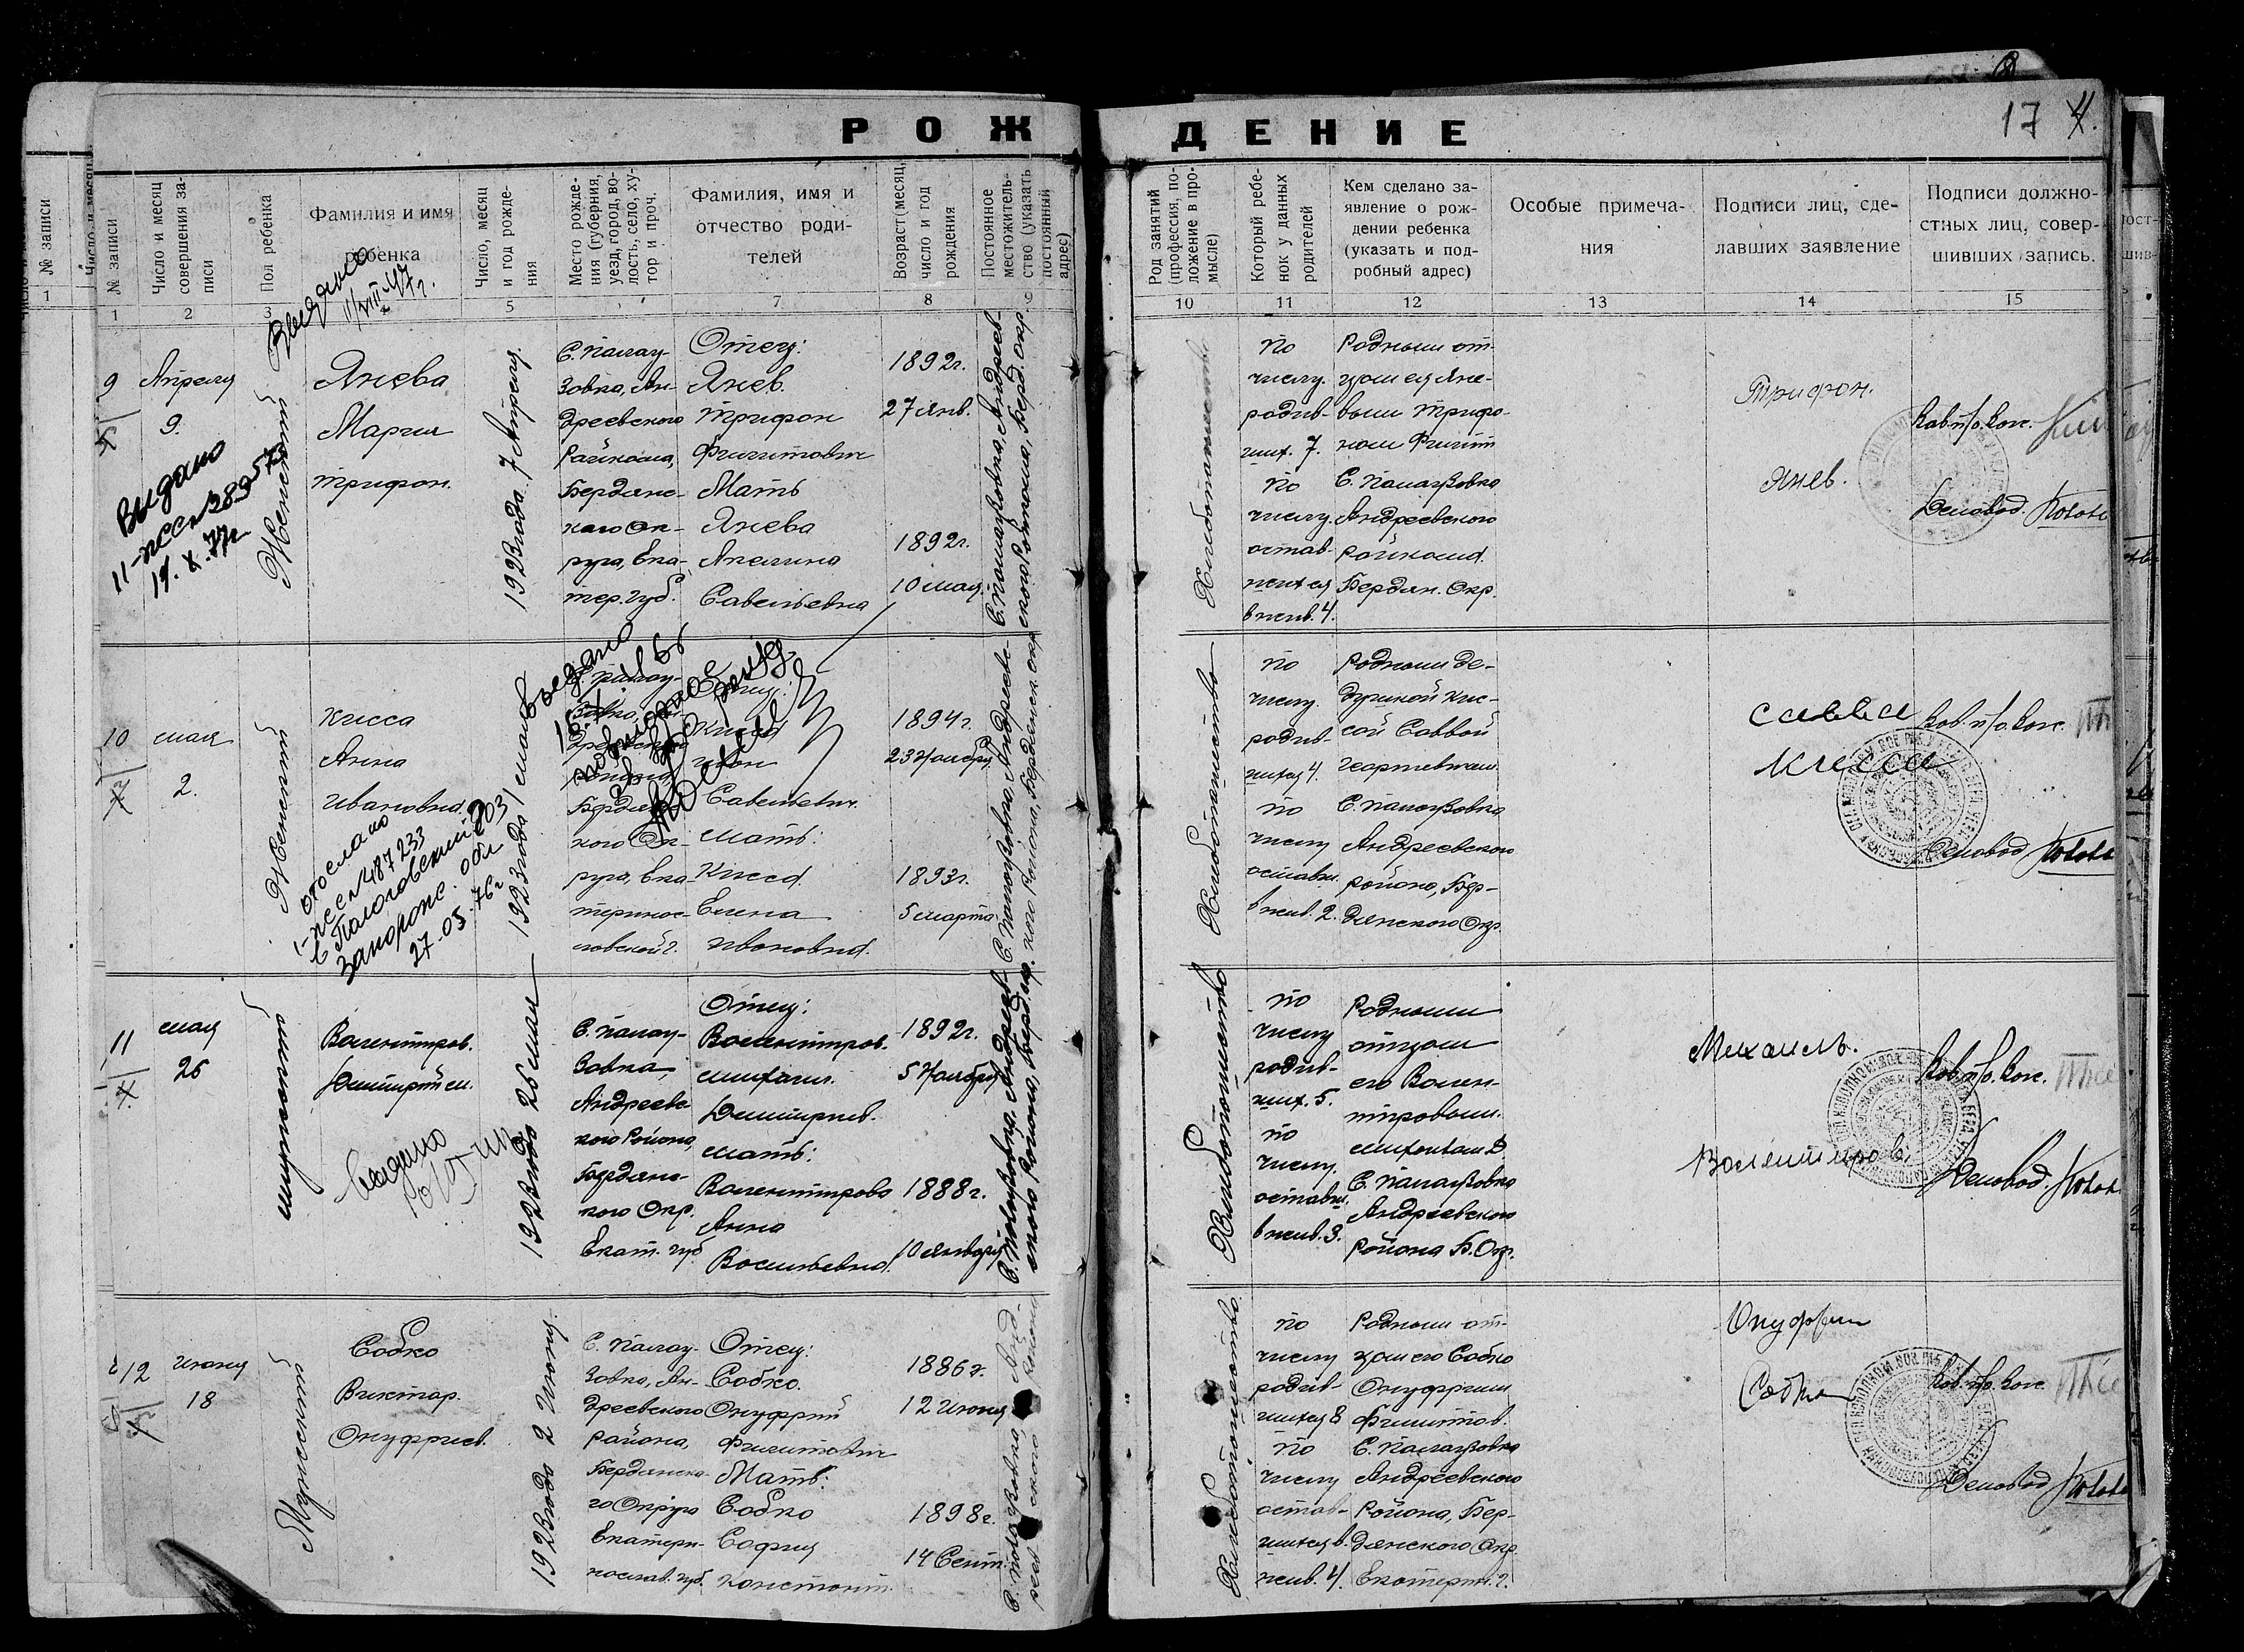 РОЖДЕНИЕ
17 4.
№ записи
Число и месяц совершения записи
Пол ребенка
Фамилия и имя ребенка
Число, месяц и год рождения
Место рождения (губерния, уезд, город, волость, село, хутор и проч.
Фамилия, имя и отчество родителей
Возраст (месяц, число и год рождения
Постоянное местожительство (указать постоянный адрес)
Род занятий (профессия, положение в промысле)
Который ребенок у данных родителей
Кем сделано заявление о рождении ребенка (указать и подробный адрес)
Особые примечания
Подписи лиц, сделавших заявление
Подписи должностных лиц, совершивших запись.
1 2 3 5 7 8
10 11 12 13 14 15
9
Апреля
9.
Выдано
19. X. 77г.
Женский
Янева
Мария
Трифон.
1923 года 7 Апреля.
С. Палау-
зовка, Ан-
дреевского
Района,
Бердянс-
кого Ок-
руга, Ека-
тер. губ.
Отец:
Янев.
Трифон
Филиппович
Мать
Янева
Ангелина
Савельевна
1892г.
27 Янв.
1892г.
10 мая.
Хлебопашество
По
числу.
родив-
ших. 7.
По
числу.
остав-
шихся
в жив. 4.
Родным от-
цом ея Яне-
вым Трифо-
ном Филип
С. Палаузовка
Андреевского
Района.
Бердян. Окр.
Трифон.
Янев.
Деловод.
10
мая
2.
Женский
Кисса
Анна
Ивановна.
отослано
в Пологовский
Запорож. обл
27-05-76г
1923 года 1 мая
выдано
повторное
Бердянс-
кого Ок-
руга, Ека-
теринос-
лавской г.
Кисса
Иван
Савельевич.
мать:
Кисса.
Елена
Ивановна.
1894г.
23 Ноября
1893г.
5 марта
Хлебопашество
По
числу.
родив.
шихся 4.
По
числу
оставш.
в жив. 2.
Родным де-
душкой Кис-
сой Саввой
Георгиевичем
С. Палаузовка
Андреевского
района, Бер-
дянского Окр.
Савва
Кисса
Деловод.
11
мая
26
мужской
Валентиров.
Дмитрий м.
Выдано
1923 года 26 мая
С. Палау-
зовка,
Андреевс-
кого Района,
Бердянс-
кого Окр.
Екат. губ.
Отец:
Валентиров.
михаил.
Дмитриев.
мать:
Валентирова
Анна
Васильевна.
1892г.
5 Ноября
1888г.
10 Января
Хлебопашество
По
числу
родив-
ших. 5.
По
числу.
оставш.
в жив. 3.
Родным
отцом
его Вален-
тировым.
михаилом Д.
С. Палаузовка
Андреевского
района Б. Окр.
Михаил.
Валентиров.
Деловод.
12
июня
18
Мужской
Собко
Виктор.
Онуфриев.
1923 года 2 Июня.
С. Палау-
зовка, Ан-
дреевского
района,
Бердянско-
го Округа
Екатери-
нослав. губ.
Отец:
Собко.
Онуфрий
Филиппович
Мать:
Собко
София
Констант.
1886г.
12 Июня
1898г.
14 Сент.
Хлебопашество.
По
числу
родив-
шихся 8
По
числу
остав-
шихся в
жив. 4.
Родным от-
цом его Собко
Онуфрием
Филиппов.
С. Палаузовка
Андреевского
Района, Бер-
дянского Окр.
Екатерин. г.
Онуфрий
Собко
Деловод